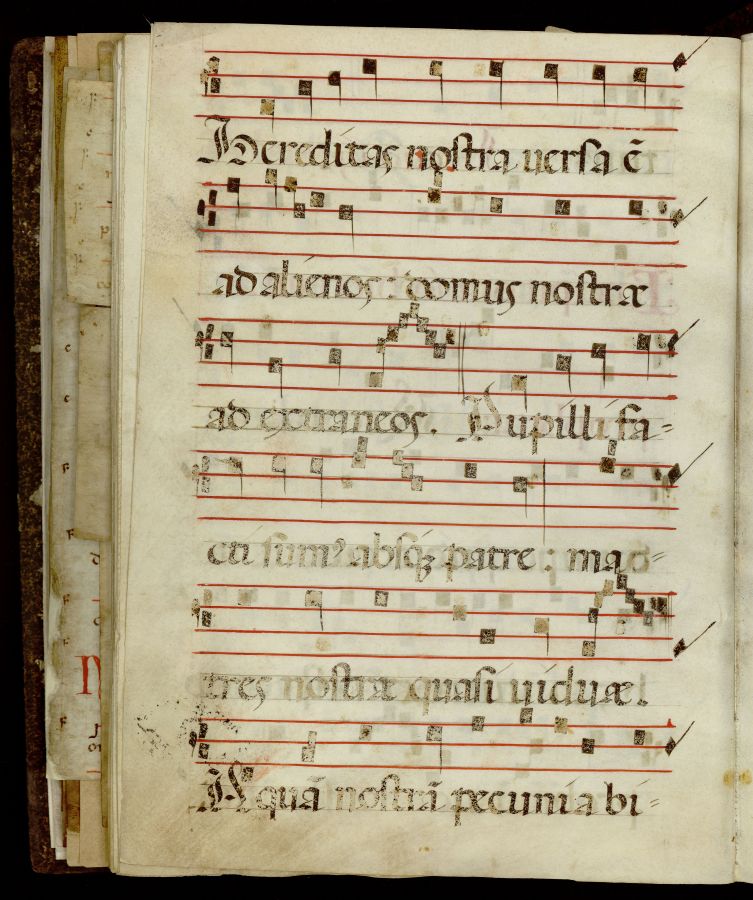 Hereditas nostra versa ē
ad alienos: domus nostræ
ad extraneos. Pupilli fa=
cti sumꝰ absqꝫ patre: ma=
tres nostræ quasi viduæ.
Aquā nostrā pecunia bi=